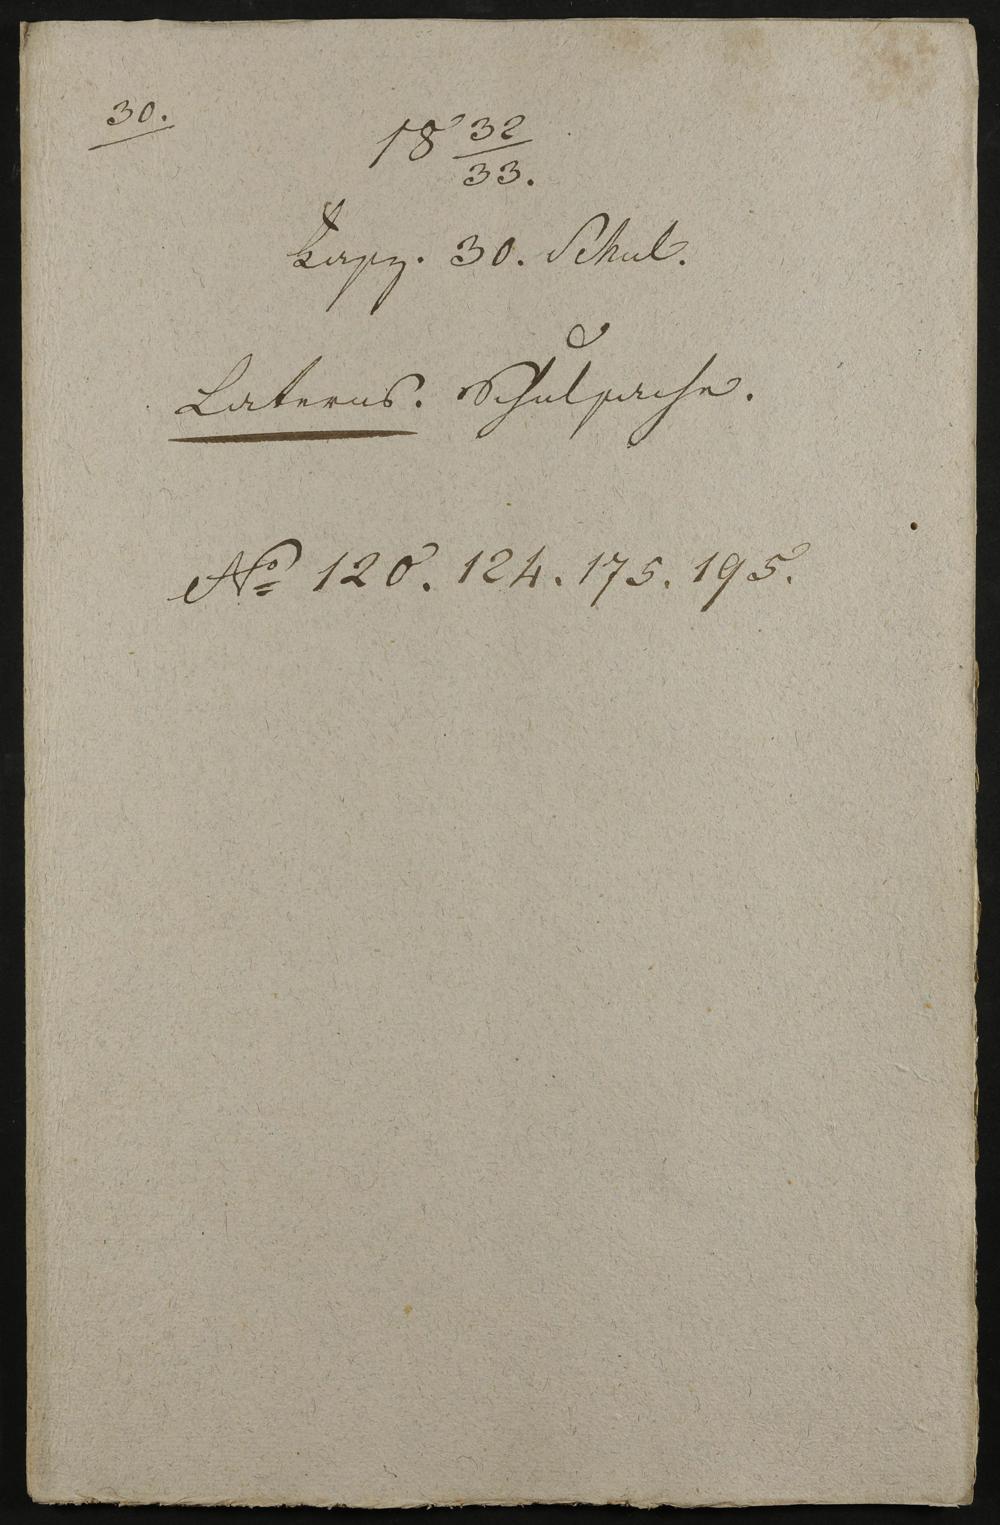 30.
18 32/33.
Fasz. 30. Schul.
Laterns. Schulsache.
No 120. 124. 175. 195.